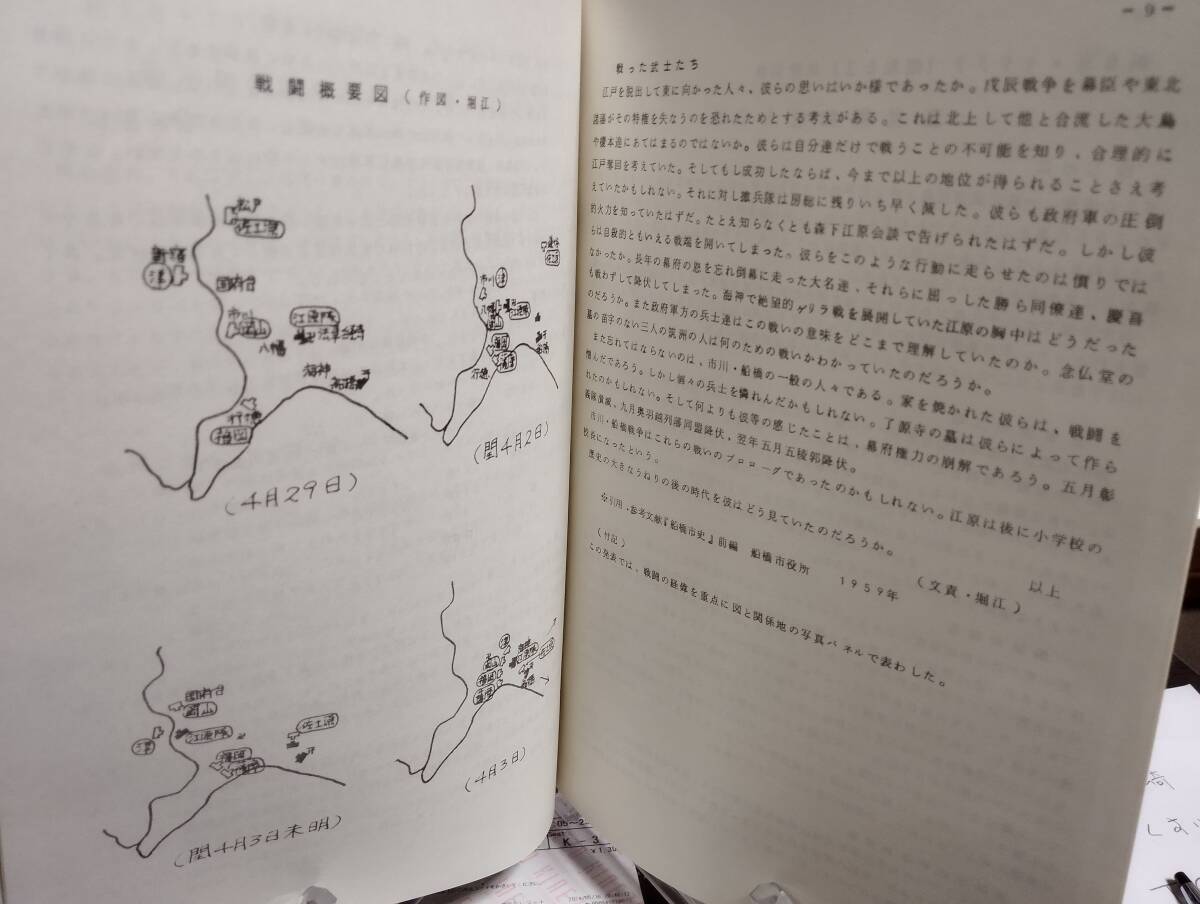 戦闘概要図（作図・堀江）
松戸
佐土原
新宿
津
国府台
市川
岡山
八幡
江原隊
法華経寺
海神
船橋
行徳
福岡
（4月29日）
市川
津
八幡
岡山
行徳
（閏4月2日）
国府台
岡山
津
江原隊
佐土原
福岡
（閏4月3日未明）
津
岡山
福岡
船橋
（4月3日）
－9－
戦った武士たち
江戸を脱出して東に向かった人々、彼らの思いはいか様であったか。戊辰戦争を幕臣や東北
諸藩がその特権を失なうのを恐れたためとする考えがある。これは北上して他と合流した大鳥
や榎本達にあてはまるのではないか。彼らは自分達だけで戦うことの不可能を知り、合理的に
江戸奪回を考えていた。そしてもし成功したならば、今まで以上の地位が得られることさえ考
えていたかもしれない。それに対し撤兵隊は房総に残りいち早く滅した。彼らも政府軍の圧倒
的火力を知っていたはずだ。たとえ知らなくとも森下江原会談で告げられたはずだ。しかし彼
らは自殺的ともいえる戦端を開いてしまった。彼らをこのような行動に走らせたのは憤りでは
なかったか。長年の幕府の恩を忘れ倒幕に走った大名達、それらに屈っした勝ら同僚達、慶喜
も戦わずして降伏してしまった。海神で絶望的ゲリラ戦を展開していた江原の胸中はどうだった
のだろうか。また政府軍方の兵士達はこの戦いの意味をどこまで理解していたのか。念仏堂の
墓の苗字のない三人の筑洲の人は何のための戦いかわかっていたのだろうか。
また忘れてはならないのは、市川・船橋の一般の人々である。家を焼かれた彼らは、戦闘を
憎んだであろう。しかし個々の兵士を憐れんだかもしれない。了源寺の墓は彼らによって作ら
れたのかもしれない。そして何よりも彼等の感じたことは、幕府権力の崩解であろう。五月彰
義隊潰滅、九月奥羽越列藩同盟降伏、翌年五月五稜郭降伏。
市川・船橋戦争はこれらの戦いのプロローグであったのかもしれない。江原は後に小学校の
校長になったという。
歴史の大きなうねりの後の時代を彼はどう見ていたのだろうか。
以上
（文責・堀江）
※引用・参考文献『船橋市史』前編　船橋市役所　1959年
（付記）
この発表では、戦闘の経緯を重点に図と関係地の写真パネルで表わした。
K-3